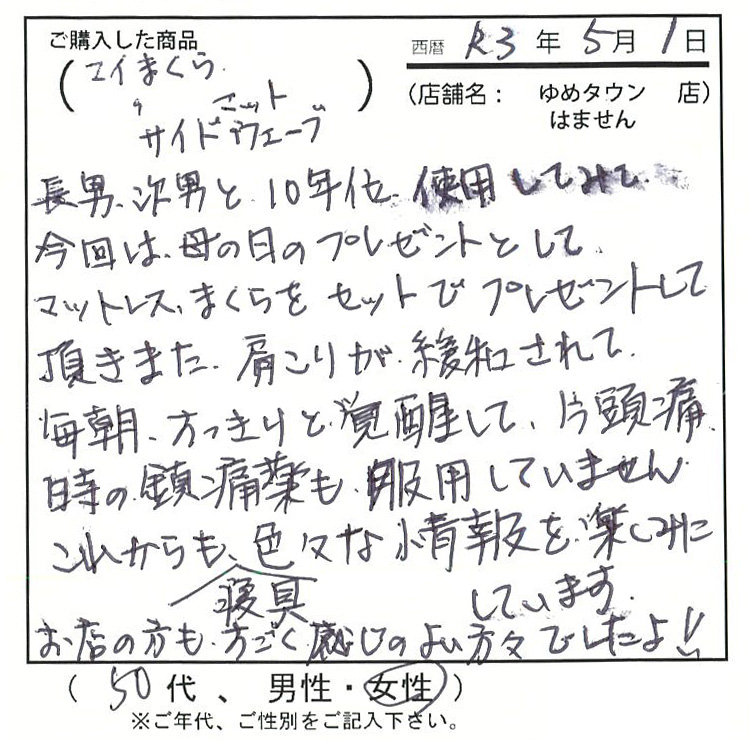 ご購入した商品
西暦 R3 年 5月 1日
(エイまくら
マット
サイドウェーブ)
(店舗名： ゆめタウン 店)
はません
長男、次男と10年位、使用してみて
今回は、母の日のプレゼントとして
マットレス、まくらをセットでプレゼントして
頂きまた、肩こりが、緩和されて、
毎朝、すっきりと覚醒して、片頭痛
時の鎮痛薬も服用していません
これからも、色々な情報を楽しみに
寝具
しています。
お店の方も、すごく感じのよい方々でしたよ!!
(50代、男性・女性)
※ご年代、ご性別をご記入下さい。